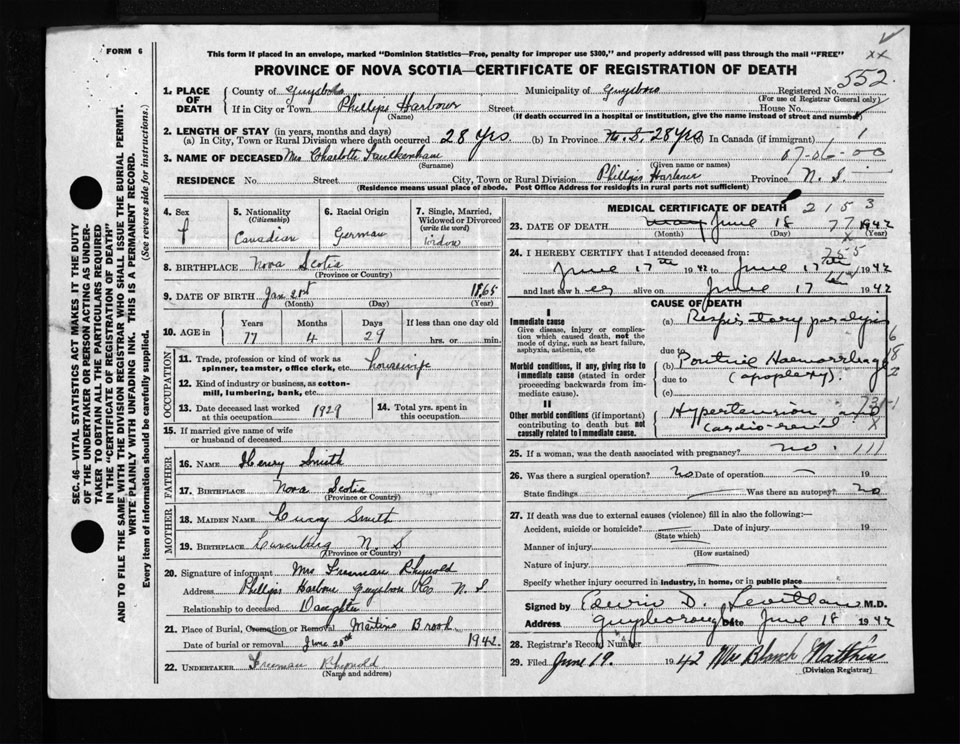 FORM 6
This form if placed in an envelope, marked "Dominion Statistics—Free, penalty for improper use $300," and properly addressed will pass through the mail "FREE"
xx
PROVINCE OF NOVA SCOTIA—CERTIFICATE OF REGISTRATION OF DEATH
552
1. PLACE OF DEATH County of Guysboro Municipality of Guysboro Registered No.
(For use of Registrar General only)
If in City or Town Phillips Harbour Street House No.
(Name) (If death occurred in a hospital or institution, give name instead of street and number)
2. LENGTH OF STAY (in years, months and days)
(a) In City, Town or Rural Division where death occurred 28 Yrs. (b) In Province N. S. 28 Yrs (c) In Canada (if immigrant) 1
3. NAME OF DECEASED Mrs Charlotte 07-06-00
(Surname) (Given name or names)
RESIDENCE No. Street City, Town or Rural Division Phillips Harbour Province N. S.
(Residence means usual place of abode. Post Office Address for residents in rural parts not sufficient)
4. Sex f
5. Nationality (Citizenship) Canadian
6. Racial Origin German
7. Single, Married, Widowed or Divorced (write the word) Widow
8. BIRTHPLACE Nova Scotia
(Province or Country)
9. DATE OF BIRTH Jan 1865
(Month) (Day) (Year)
10. AGE in Years Months Days If less than one day old
77 4 29 hrs. or min.
OCCUPATION
11. Trade, profession or kind of work as spinner, teamster, office clerk, etc. housewife
12. Kind of industry or business, as cotton-mill, lumbering, bank, etc.
13. Date deceased last worked at this occupation 1929
14. Total yrs. spent in this occupation.
15. If married give name of wife or husband of deceased
FATHER
16. NAME Henry Smith
17. BIRTHPLACE Nova Scotia
(Province or Country)
MOTHER
18. MAIDEN NAME Smith
19. BIRTHPLACE Lunenburg N. S
(Province or Country)
20. Signature of informant Mrs Freeman Rhynold
Address Phillips Harbour Guysboro Co N. S
Relationship to deceased Daughter
21. Place of Burial, Cremation or Removal Brook
Date of burial or removal June 20th 1942
22. UNDERTAKER Freeman Rhynold
(Name and address)
MEDICAL CERTIFICATE OF DEATH 2153
23. DATE OF DEATH June 18 77 1942
(Month) (Day) (Year)
24. I HEREBY CERTIFY that I attended deceased from:
June 17th 1942 to June 17 1942
and last saw her alive on June 17 1942
CAUSE OF DEATH
I
Immediate cause
Give disease, injury or complication which caused death, not the mode of dying, such as heart failure, asphyxia, asthenia, etc
(a) Respiratory paralysis
due to
Morbid conditions, if any, giving rise to immediate cause (stated in order proceeding backwards from immediate cause)
(b) Pontine Haemorrhage
due to (apoplexy).
(c)
II
Other morbid conditions (if important) contributing to death but not causally related to immediate cause.
Hypertension and
Cardio-renal
25. If a woman, was the death associated with pregnancy? no. 111
26. Was there a surgical operation? no Date of operation 19
State findings Was there an autopsy? no
27. If death was due to external causes (violence) fill in also the following:—
Accident, suicide or homicide? Date of injury 19
(State which)
Manner of injury
(How sustained)
Nature of injury
Specify whether injury occurred in industry, in home, or in public place
Signed by Edwin D. M.D.
Address Guysborough Date June 18 1942
28. Registrar's Record Number
29. Filed June 19. 1942 Mrs Blanch Matthews
(Division Registrar)
SEC. 46—VITAL STATISTICS ACT MAKES IT THE DUTY
OF THE UNDERTAKER OR PERSON ACTING AS UNDER-
TAKER TO OBTAIN ALL THE PARTICULARS REQUIRED
IN THE "CERTIFICATE OF REGISTRATION OF DEATH"
AND TO FILE THE SAME WITH THE DIVISION REGISTRAR WHO SHALL ISSUE THE BURIAL PERMIT.
WRITE PLAINLY WITH UNFADING INK. THIS IS A PERMANENT RECORD.
Every item of information should be carefully supplied. (See reverse side for instructions.)